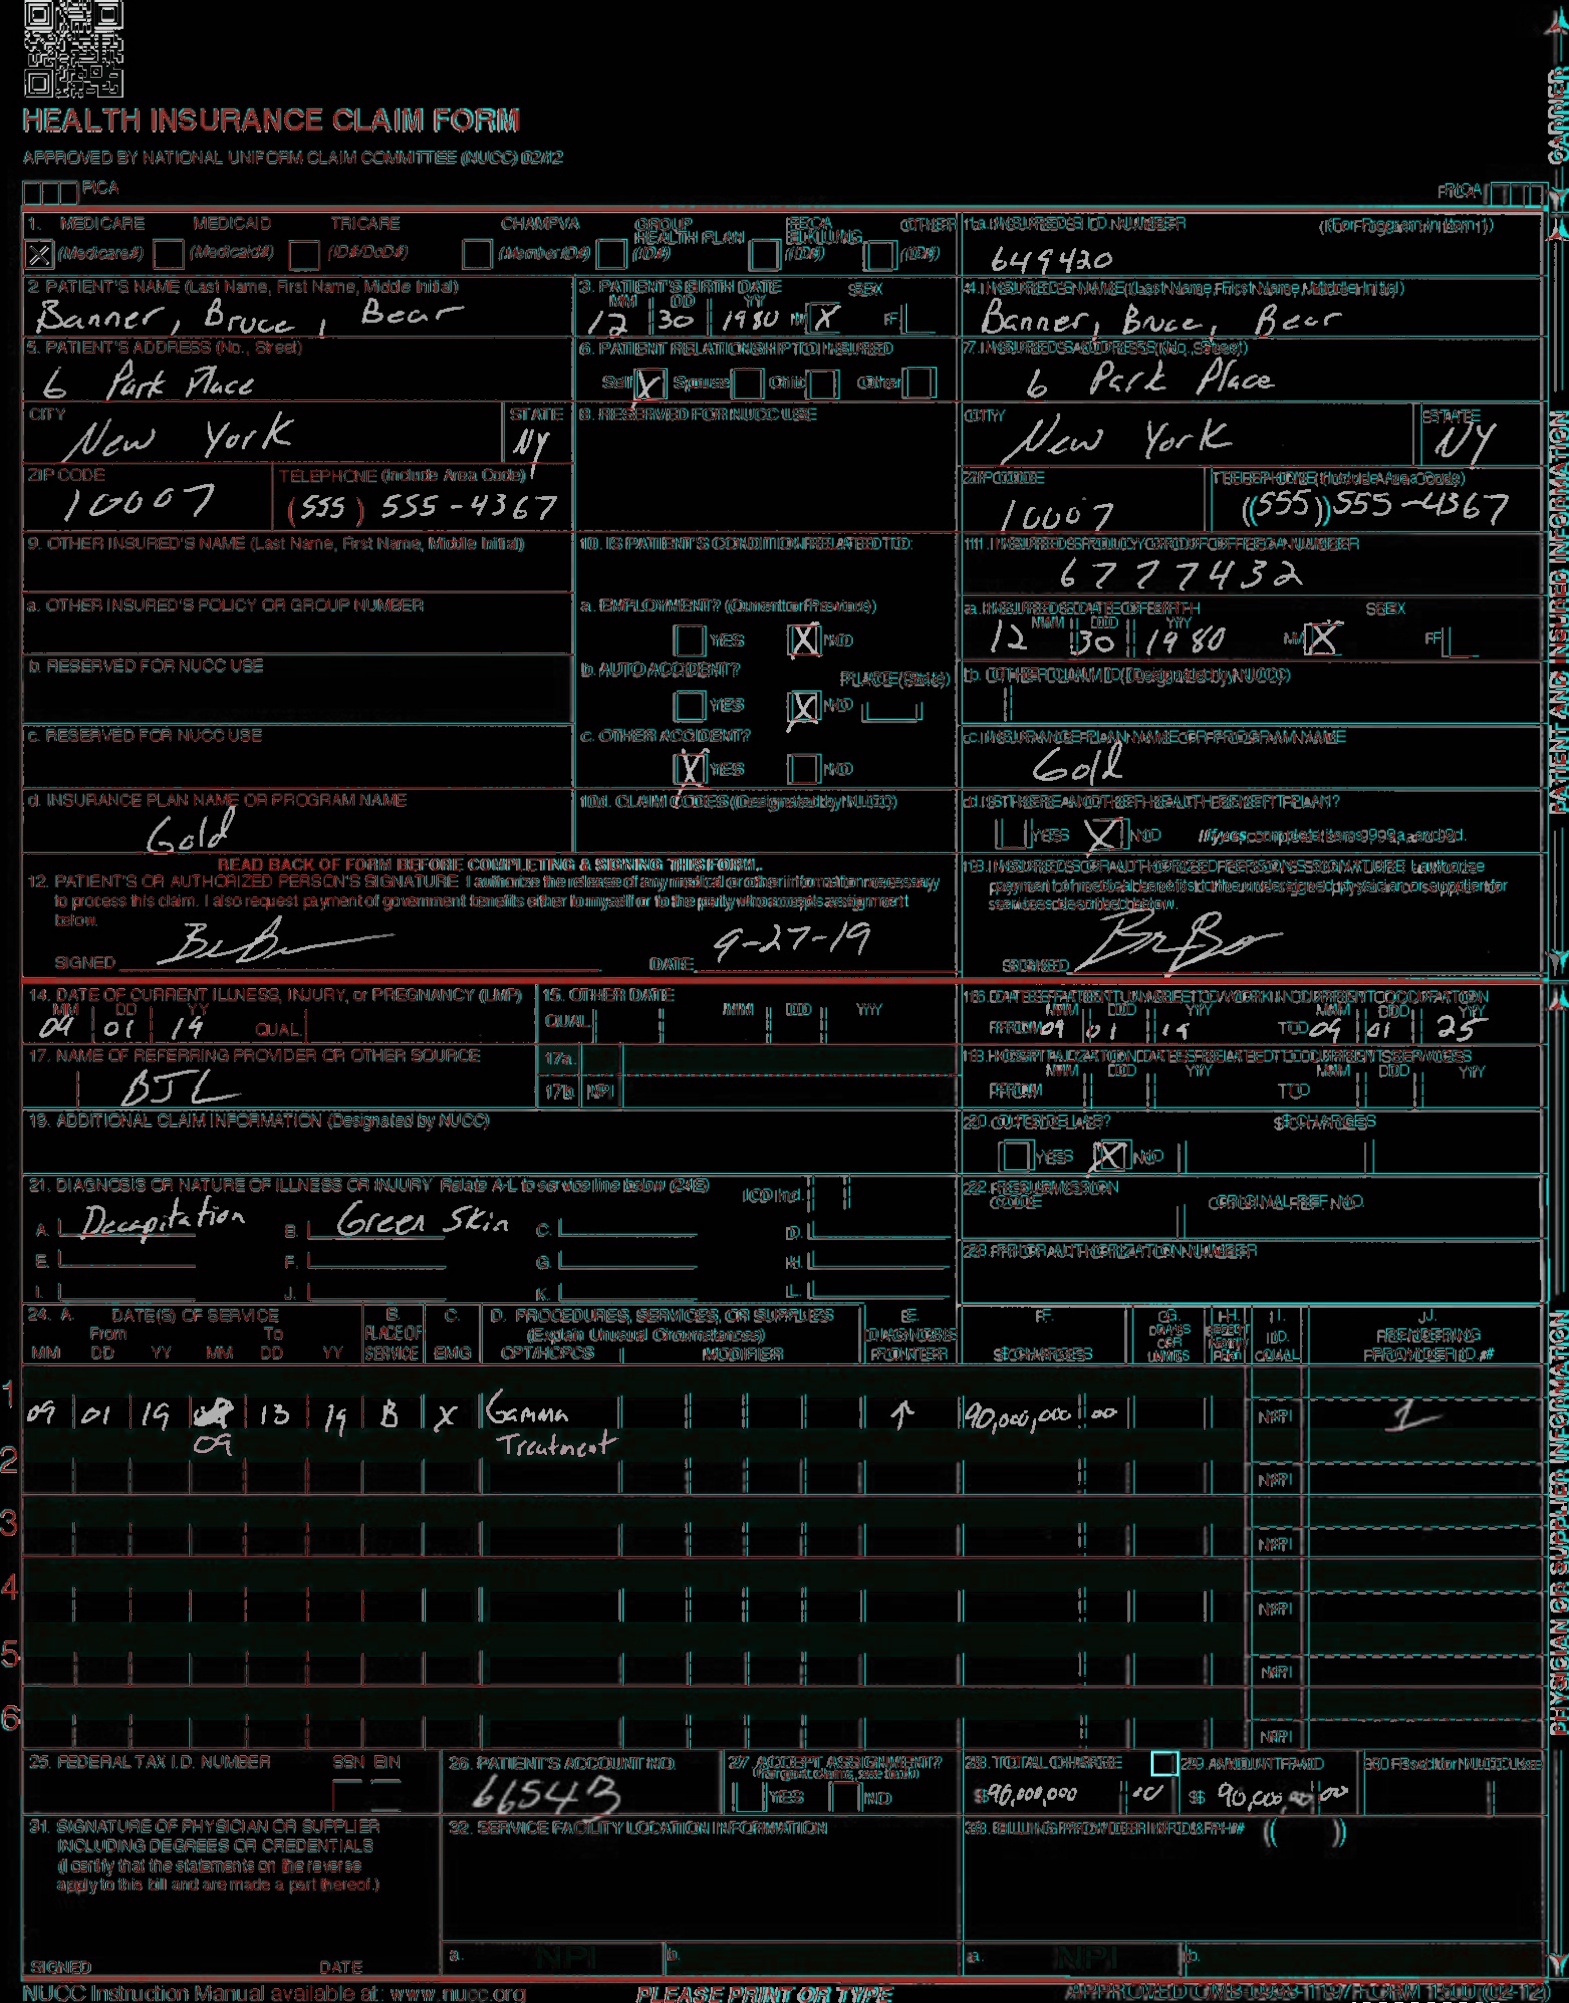 HEALTH INSURANCE CLAIM FORM
APPROVED BY NATIONAL UNIFORM CLAIM COMMITTEE (NUCC) 02/12
PICA PICA
CARRIER
1. MEDICARE MEDICAID TRICARE CHAMPVA GROUP HEALTH PLAN FECA BLK LUNG OTHER
X (Medicare#) (Medicaid#) (ID#/DoD#) (Member ID#) (ID#) (ID#) (ID#)
1a. INSURED'S I.D. NUMBER (For Program in Item 1)
649420
2. PATIENT'S NAME (Last Name, First Name, Middle Initial)
Banner, Bruce, Bear
3. PATIENT'S BIRTH DATE SEX
MM DD YY
12 30 1980 M X F
4. INSURED'S NAME (Last Name, First Name, Middle Initial)
Banner, Bruce, Bear
5. PATIENT'S ADDRESS (No., Street)
6 Park Place
6. PATIENT RELATIONSHIP TO INSURED
Self X Spouse Child Other
7. INSURED'S ADDRESS (No., Street)
6 Park Place
CITY STATE
New York NY
8. RESERVED FOR NUCC USE
CITY STATE
New York NY
ZIP CODE TELEPHONE (Include Area Code)
10007 (555) 555-4367
ZIP CODE TELEPHONE (Include Area Code)
10007 (555) 555-4367
9. OTHER INSURED'S NAME (Last Name, First Name, Middle Initial)
10. IS PATIENT'S CONDITION RELATED TO:
11. INSURED'S POLICY GROUP OR FECA NUMBER
6777432
a. OTHER INSURED'S POLICY OR GROUP NUMBER
a. EMPLOYMENT? (Current or Previous)
YES X NO
a. INSURED'S DATE OF BIRTH SEX
MM DD YY
12 30 1980 M X F
b. RESERVED FOR NUCC USE
b. AUTO ACCIDENT? PLACE (State)
YES X NO
b. OTHER CLAIM ID (Designated by NUCC)
c. RESERVED FOR NUCC USE
c. OTHER ACCIDENT?
X YES NO
c. INSURANCE PLAN NAME OR PROGRAM NAME
Gold
d. INSURANCE PLAN NAME OR PROGRAM NAME
Gold
10d. CLAIM CODES (Designated by NUCC)
d. IS THERE ANOTHER HEALTH BENEFIT PLAN?
YES X NO If yes, complete items 9, 9a, and 9d.
READ BACK OF FORM BEFORE COMPLETING & SIGNING THIS FORM.
12. PATIENT'S OR AUTHORIZED PERSON'S SIGNATURE I authorize the release of any medical or other information necessary
to process this claim. I also request payment of government benefits either to myself or to the party who accepts assignment
below.
SIGNED DATE 9-27-19
13. INSURED'S OR AUTHORIZED PERSON'S SIGNATURE I authorize
payment of medical benefits to the undersigned physician or supplier for
services described below.
SIGNED
PATIENT AND INSURED INFORMATION
14. DATE OF CURRENT ILLNESS, INJURY, or PREGNANCY (LMP)
MM DD YY
09 01 19 QUAL.
15. OTHER DATE
QUAL. MM DD YY
16. DATES PATIENT UNABLE TO WORK IN CURRENT OCCUPATION
MM DD YY MM DD YY
FROM 09 01 19 TO 09 01 25
17. NAME OF REFERRING PROVIDER OR OTHER SOURCE
BJL
17a.
17b. NPI
18. HOSPITALIZATION DATES RELATED TO CURRENT SERVICES
MM DD YY MM DD YY
FROM TO
19. ADDITIONAL CLAIM INFORMATION (Designated by NUCC)
20. OUTSIDE LAB? $ CHARGES
YES X NO
21. DIAGNOSIS OR NATURE OF ILLNESS OR INJURY Relate A-L to service line below (24E) ICD Ind.
A. Decapitation B. Green Skin C. D.
E. F. G. H.
I. J. K. L.
22. RESUBMISSION CODE ORIGINAL REF. NO.
23. PRIOR AUTHORIZATION NUMBER
24. A. DATE(S) OF SERVICE B. C. D. PROCEDURES, SERVICES, OR SUPPLIES E. F. G. H. I. J.
From To PLACE OF (Explain Unusual Circumstances) DIAGNOSIS DAYS OR UNITS EPSDT Family Plan ID. RENDERING
MM DD YY MM DD YY SERVICE EMG CPT/HCPCS MODIFIER POINTER $ CHARGES QUAL. PROVIDER ID. #
1
09 01 19 13 19 B X Gamma ↑ 90,000,000 00 NPI 1
09 Treatment
2 NPI
3 NPI
4 NPI
5 NPI
6 NPI
25. FEDERAL TAX I.D. NUMBER SSN EIN
26. PATIENT'S ACCOUNT NO.
66543
27. ACCEPT ASSIGNMENT?
(For govt. claims, see back)
YES NO
28. TOTAL CHARGE
$ 90,000,000 00
29. AMOUNT PAID
$ 90,000,000 00
30. Rsvd for NUCC Use
31. SIGNATURE OF PHYSICIAN OR SUPPLIER
INCLUDING DEGREES OR CREDENTIALS
(I certify that the statements on the reverse
apply to this bill and are made a part thereof.)
SIGNED DATE
32. SERVICE FACILITY LOCATION INFORMATION
a. NPI b.
33. BILLING PROVIDER INFO & PH # ( )
a. NPI b.
PHYSICIAN OR SUPPLIER INFORMATION
NUCC Instruction Manual available at: www.nucc.org PLEASE PRINT OR TYPE APPROVED OMB-0938-1197 FORM 1500 (02-12)